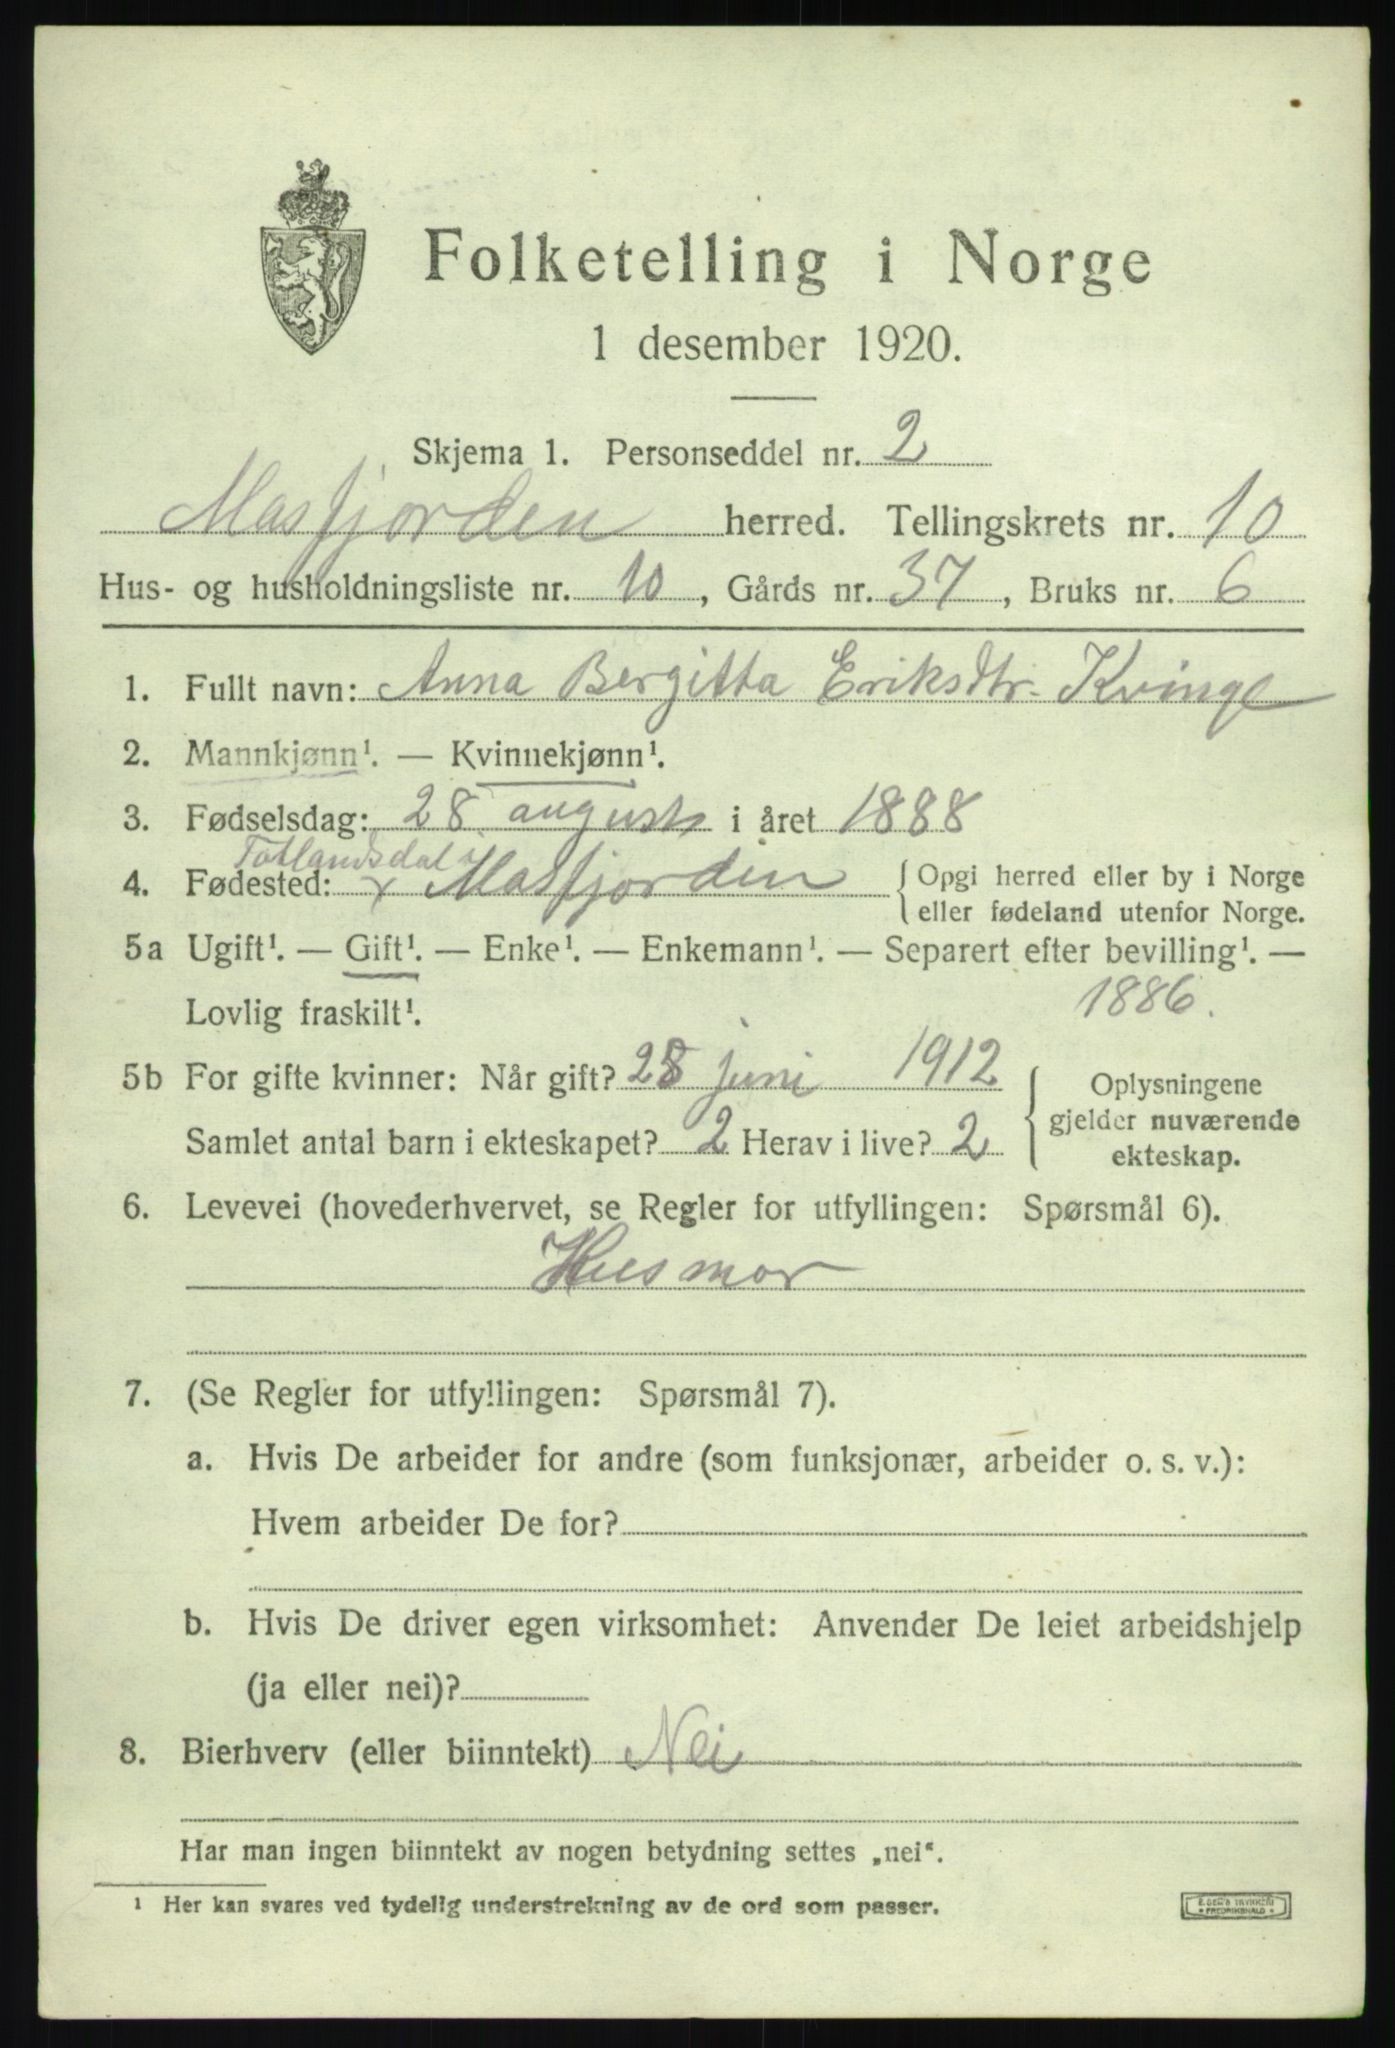 Folketelling i Norge
1 desember 1920.
Skjema 1. Personseddel nr. 2
Masfjorden herred. Tellingskrets nr. 10
Hus- og husholdningsliste nr. 10, Gårds nr. 37, Bruks nr. 6
1. Fullt navn: Anna Bergitta Eriksdtr. Kvinge
2. Mannkjønn¹. — Kvinnekjønn¹.
3. Fødselsdag: 28 august i året 1888
Totlandsdal i
4. Fødested: Masfjorden { Opgi herred eller by i Norge
eller fødeland utenfor Norge.
5a Ugift¹. — Gift¹. — Enke¹. — Enkemann¹. — Separert efter bevilling¹. —
Lovlig fraskilt¹. 1886.
5b For gifte kvinner: Når gift? 28 juni 1912 { Oplysningene
gjelder nuværende
ekteskap.
Samlet antal barn i ekteskapet? 2 Herav i live? 2
6. Levevei (hovederhvervet, se Regler for utfyllingen: Spørsmål 6).
Husmor
7. (Se Regler for utfyllingen: Spørsmål 7).
a. Hvis De arbeider for andre (som funksjonær, arbeider o. s. v.):
Hvem arbeider De for?
b. Hvis De driver egen virksomhet: Anvender De leiet arbeidshjelp
(ja eller nei)?
8. Bierhverv (eller biinntekt) Nei
Har man ingen biinntekt av nogen betydning settes „nei“.
¹ Her kan svares ved tydelig understrekning av de ord som passer.